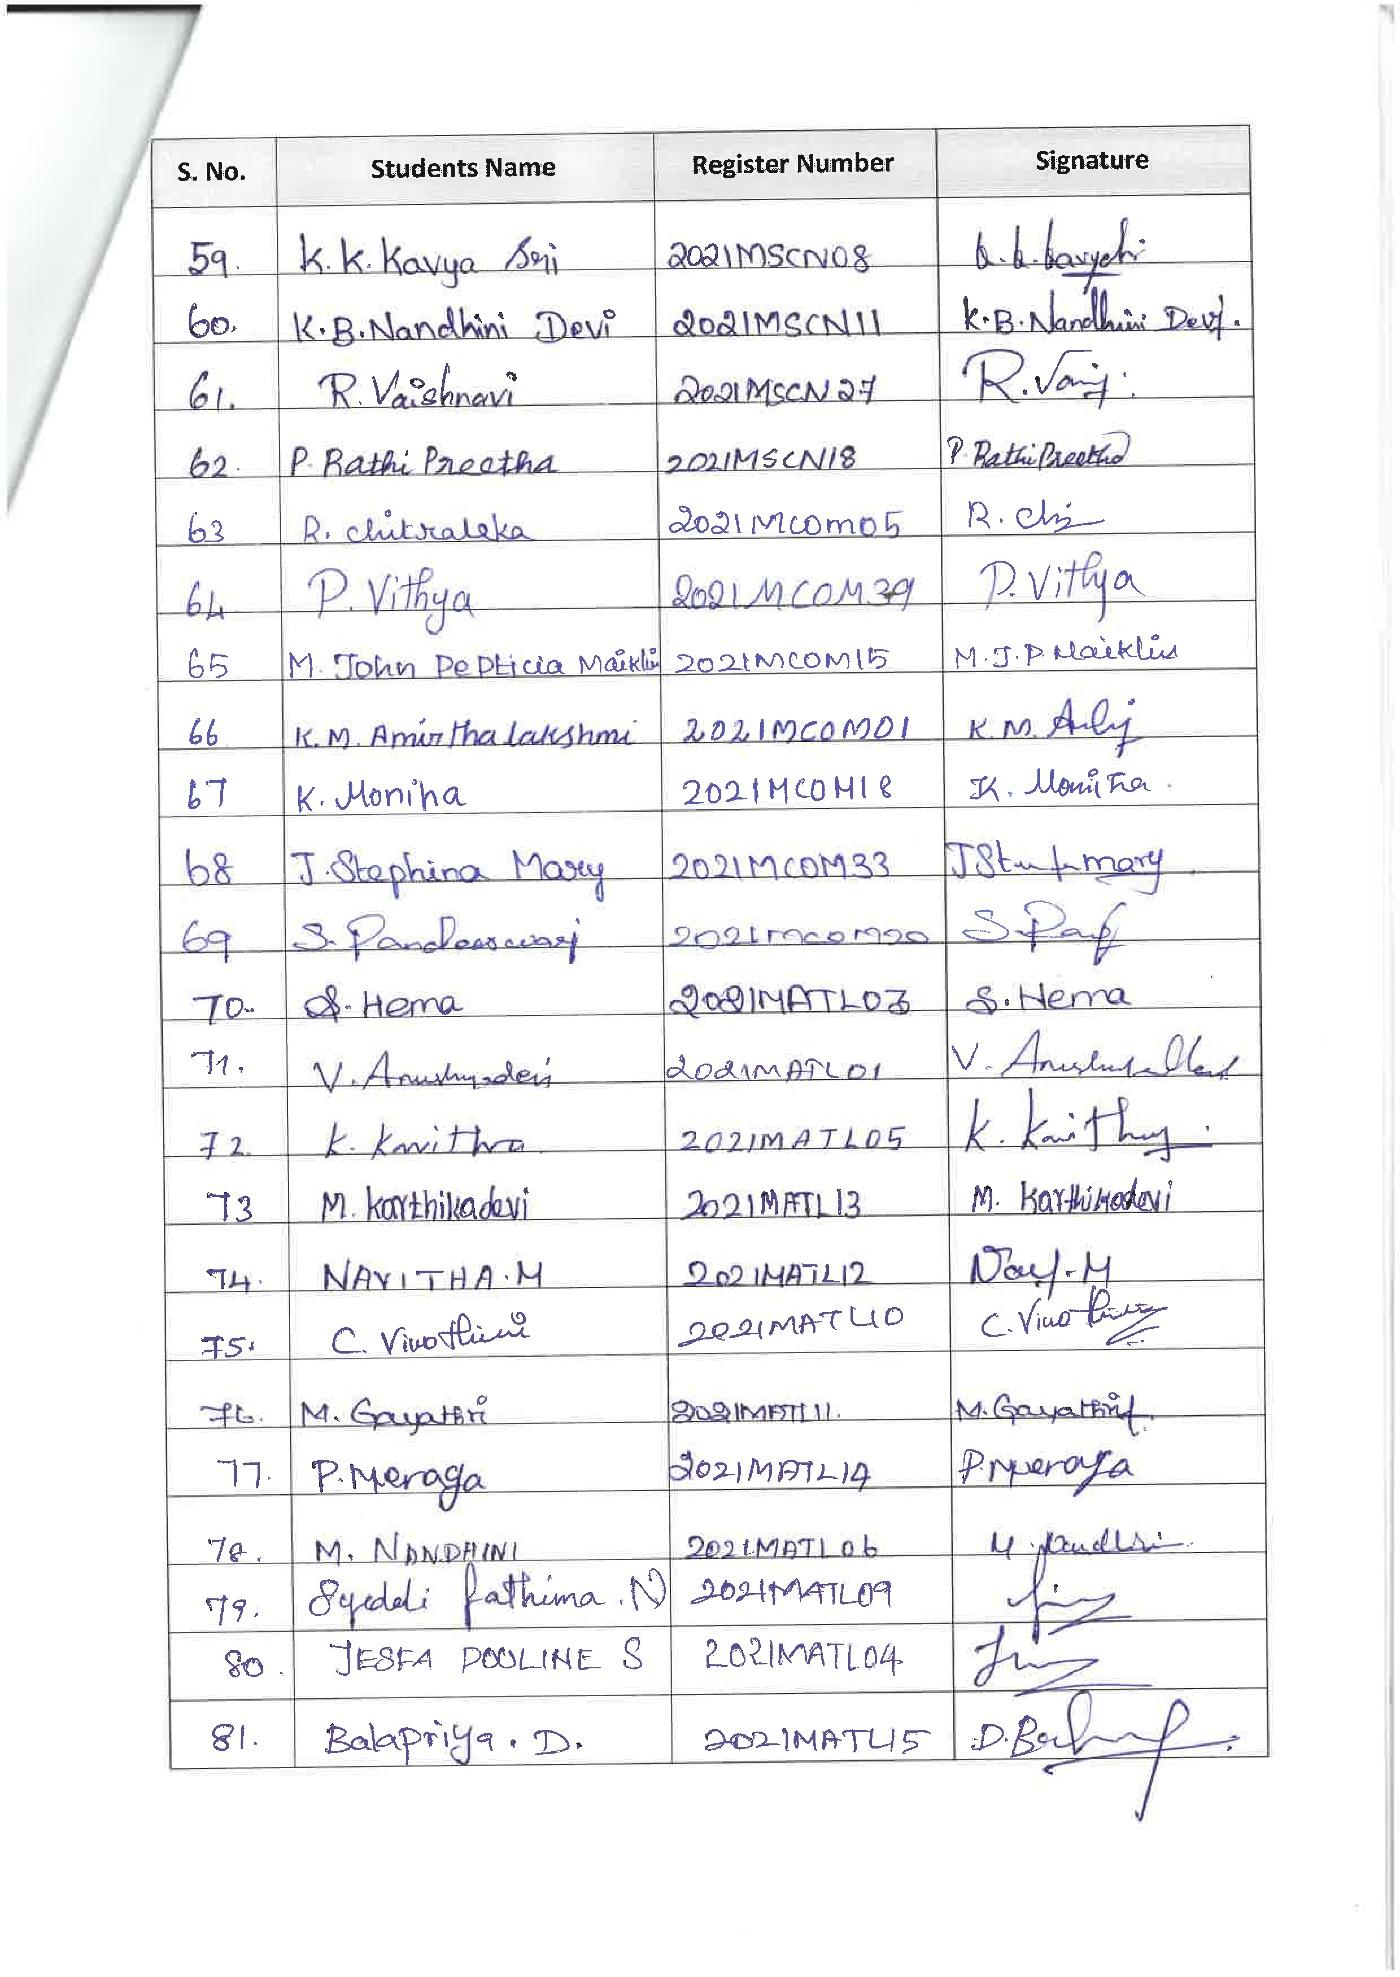 S. No. Students Name Register Number Signature
59. K.K.Kavya Sri 2021MSCN08
60. K.B.Nandhini Devi 2021MSCN11 K.B.Nandhini Devi.
61. R.Vaishnavi 2021MSCN27 R.
62. P. Rathi Preetha 2021MSCN18 P. Rathi Preetha
63 R. Chitraleka 2021MCOM05 R. Chi
64 P. Vithya 2021MCOM39 P. Vithya
65 M. John Pepticia Maiklin 2021MCOM15 M.J.P Maiklin
66 K.M. Amirthalakshmi 2021MCOM01 K.M.
67 K. Moniha 2021MCOM18 K. Moniha.
68 J.Stephina Mary 2021MCOM33 mary
69 S. Pandeeswari 2021MCOM20
70. S. Hema 2021MATL03 S. Hema
71. V. Anushyadevi 2021MATL01 V.
72. K. Kavitha 2021MATL05 K.
73 M. Karthikadevi 2021MATL13 M. Karthikadevi
74. NAVITHA.M 2021MATL12
75. C. Vinothini 2021MATL10 C.
76. M. Gayathri 2021MATL11. M. Gayathri
77. P. Meraga 2021MATL14 P. Meraga
78. M. NANDHINI 2021MATL06 M. Nandhini
79. Syeddi fathima .N 2021MATL09
80. JESFA POULINE S 2021MATL04
81. Balapriya. D. 2021MATL15